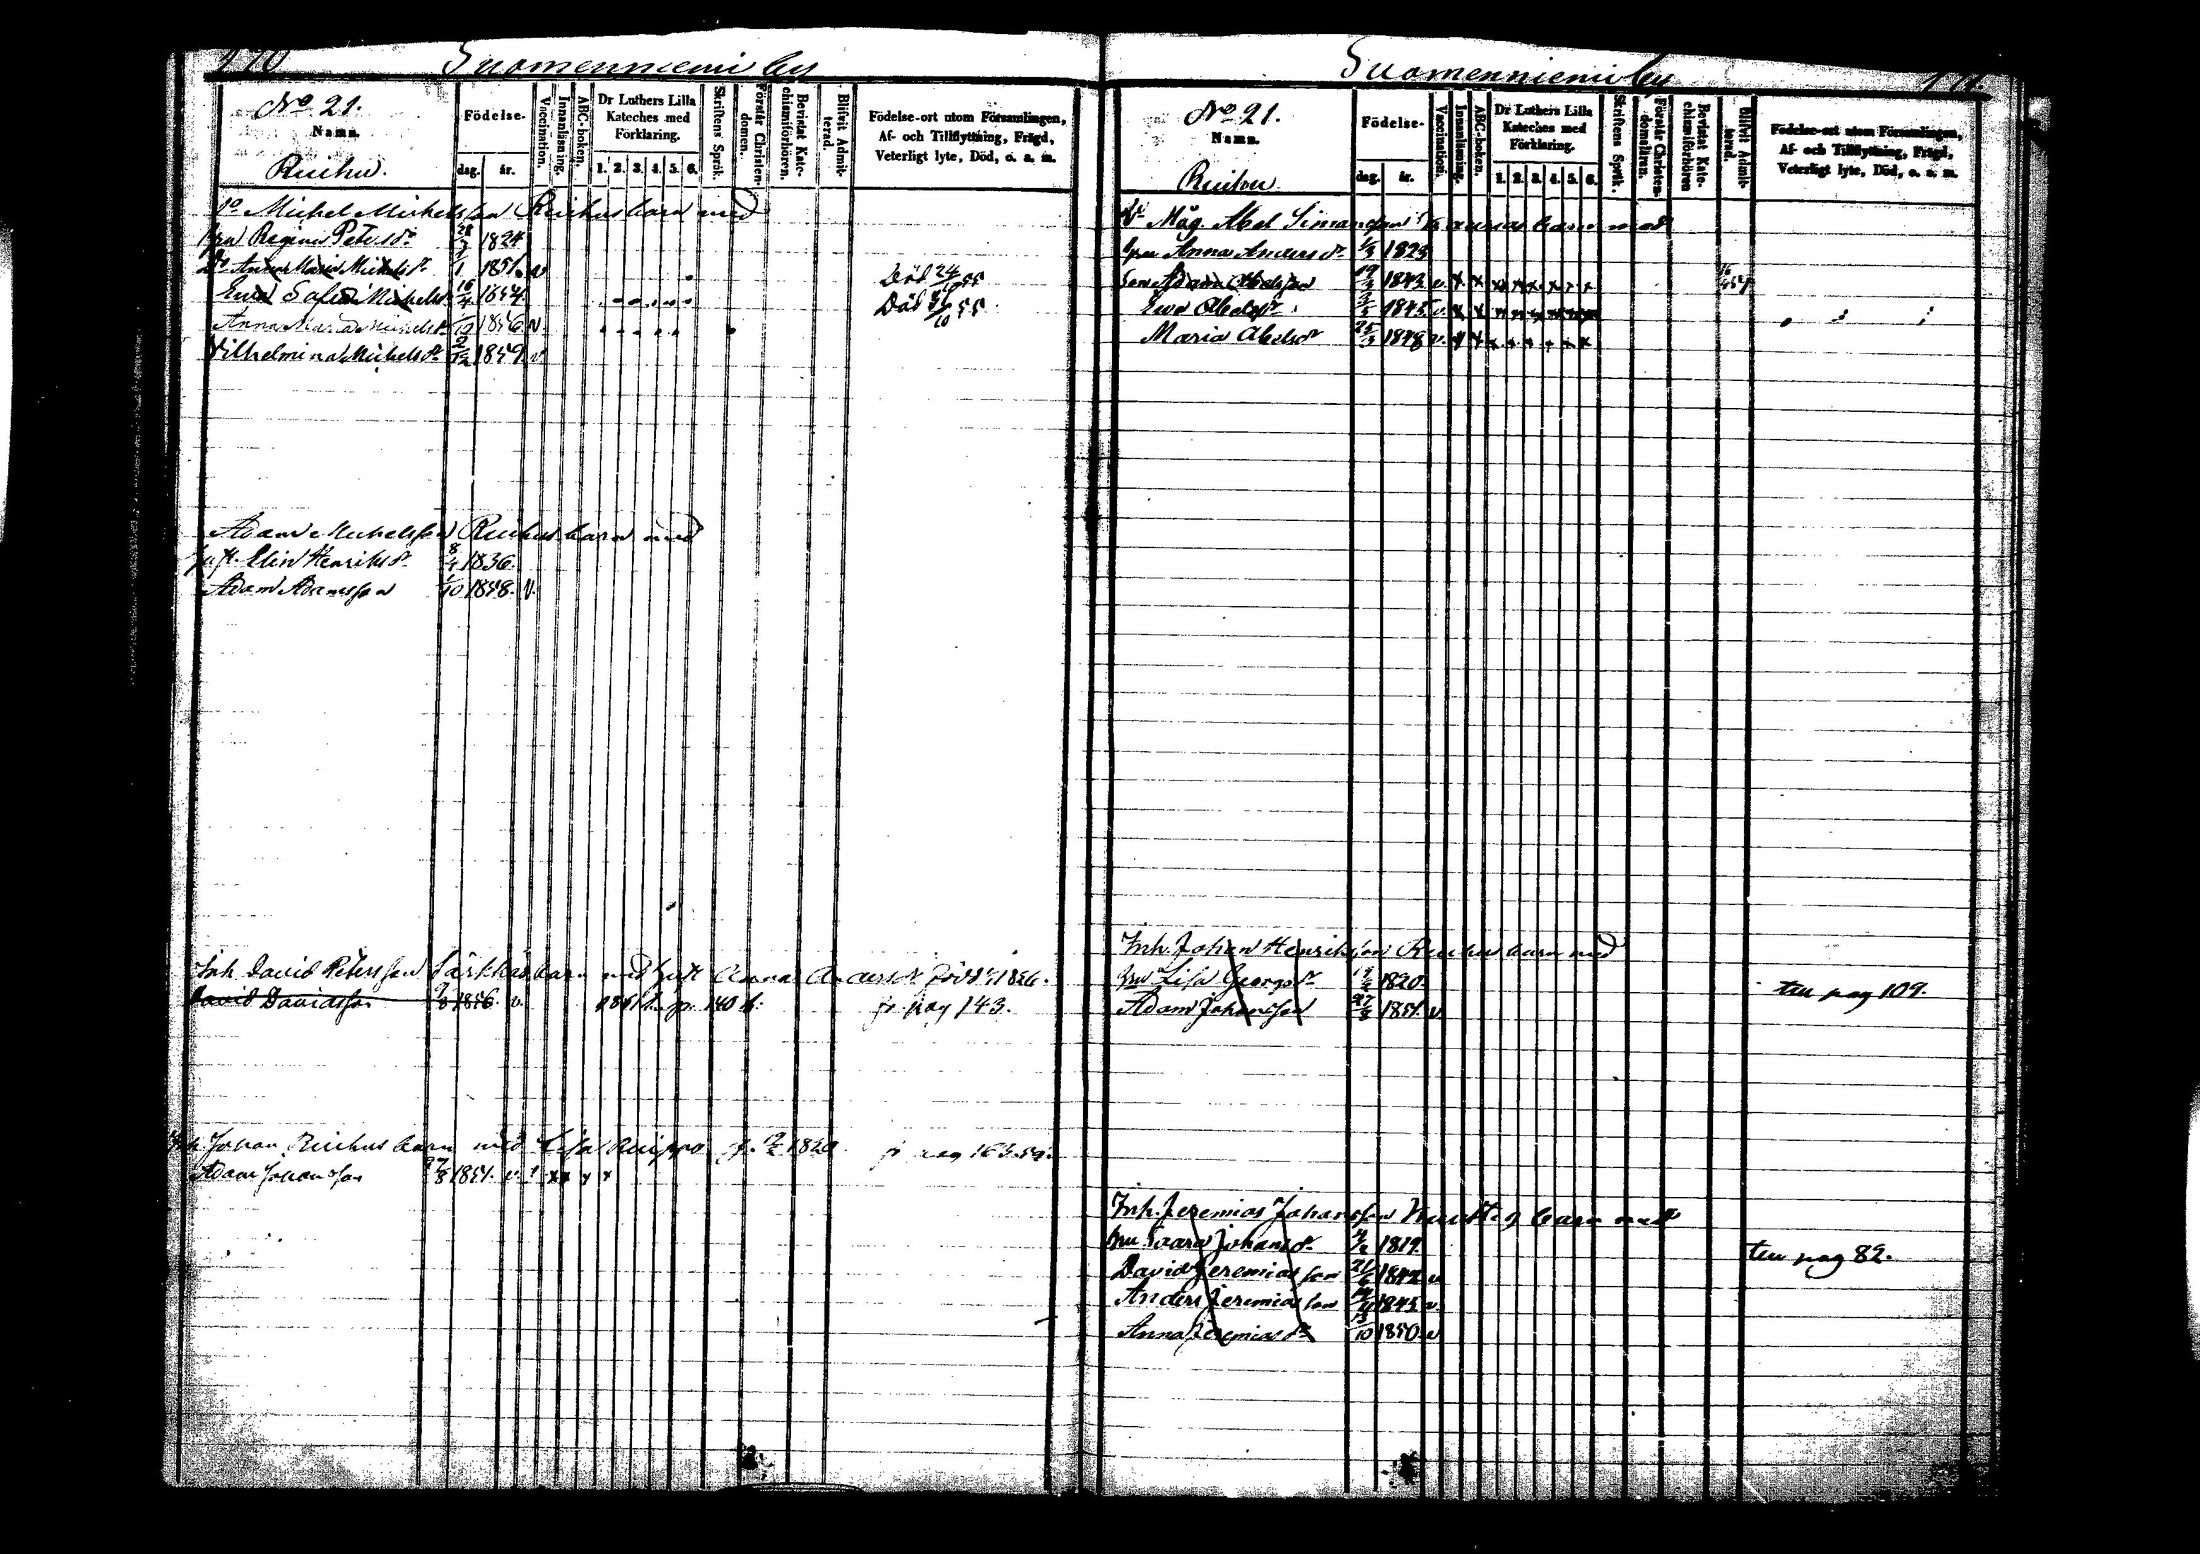 170 Suomenniemi by
No 21.
Namn.
Ruihu.
Födelse-
dag. år.
Vaccination.
Innanläsning.
ABC-boken.
Dr Luthers Lilla Kateches med Förklaring.
1. 2. 3. 4. 5. 6.
Skriftens Språk.
Förstår Christen-domen.
Bevistat Kate-chismiförhören.
Blifvit Admit-terad.
Födelse-ort utom Församlingen,
Af- och Tillflyttning, Frägd,
Veterligt lyte, Död, o. a. m.
So Michel Michelsson Ruihus barn med
hru Regina Petersdr 28/7 1824
Dr Anna Maria Michelsdr 7/1 1851. v Död 24/9 55
Ewa Sofia Michelsdr 16/4 1854. Död /10 55
Anna Maria Michelsdr /10 1856 v.
Vilhelmina Michelsdr 2/12 1859 v
Adam Michelsson Ruihus barn med
hust. Elin Henriksdr 8/4 1836.
Adam Adamsson /10 1858. v.
Inh. David Petersson Särkkäs barn med hust Anna Andersdr född 1826.
David Davidsson 9/8 1856. v. p. 140 fr pag 143.
Inh. Johan Ruihus barn med Lisa Ruippo f. 1820 fr pag 163.
Adam Johansson 27/8 1851. v. x x x x
Suomenniemi by 171.
No 21.
Namn.
Ruihu.
Födelse-
dag. år.
Vaccination.
Innanläsning.
ABC-boken.
Dr Luthers Lilla Kateches med Förklaring.
1. 2. 3. 4. 5. 6.
Skriftens Språk.
Förstår Christen-domsläran.
Bevistat Kate-chismiförhören
Blifvit Admit-terad.
Födelse-ort utom Församlingen,
Af- och Tillflyttning, Frägd,
Veterligt lyte, Död, o. a. m.
Måg Abel Simonsson barn med
hru Anna Andersdr 1/3 1823
Son Adam Abelsson 19/3 1843 v. x x x x x x x x
Ewa Abelsdr 1845 v. x x x x x x x x
Maria Abelsdr 25/3 1848 v. x x x x x x x x
Inh. Johan Henriksson Ruihus barn med
hru Lisa Georgsdr 1820. till pag 109.
Adam Johansson 27/8 1851. v.
Inh. Jeremias Johansson barn med
hru Saara Johansdr /2 1819. till pag 82.
David Jeremiasson 21/6 1842 v
Anders Jeremiasson 1845 v.
Anna Jeremiasdr 13/10 1850. v